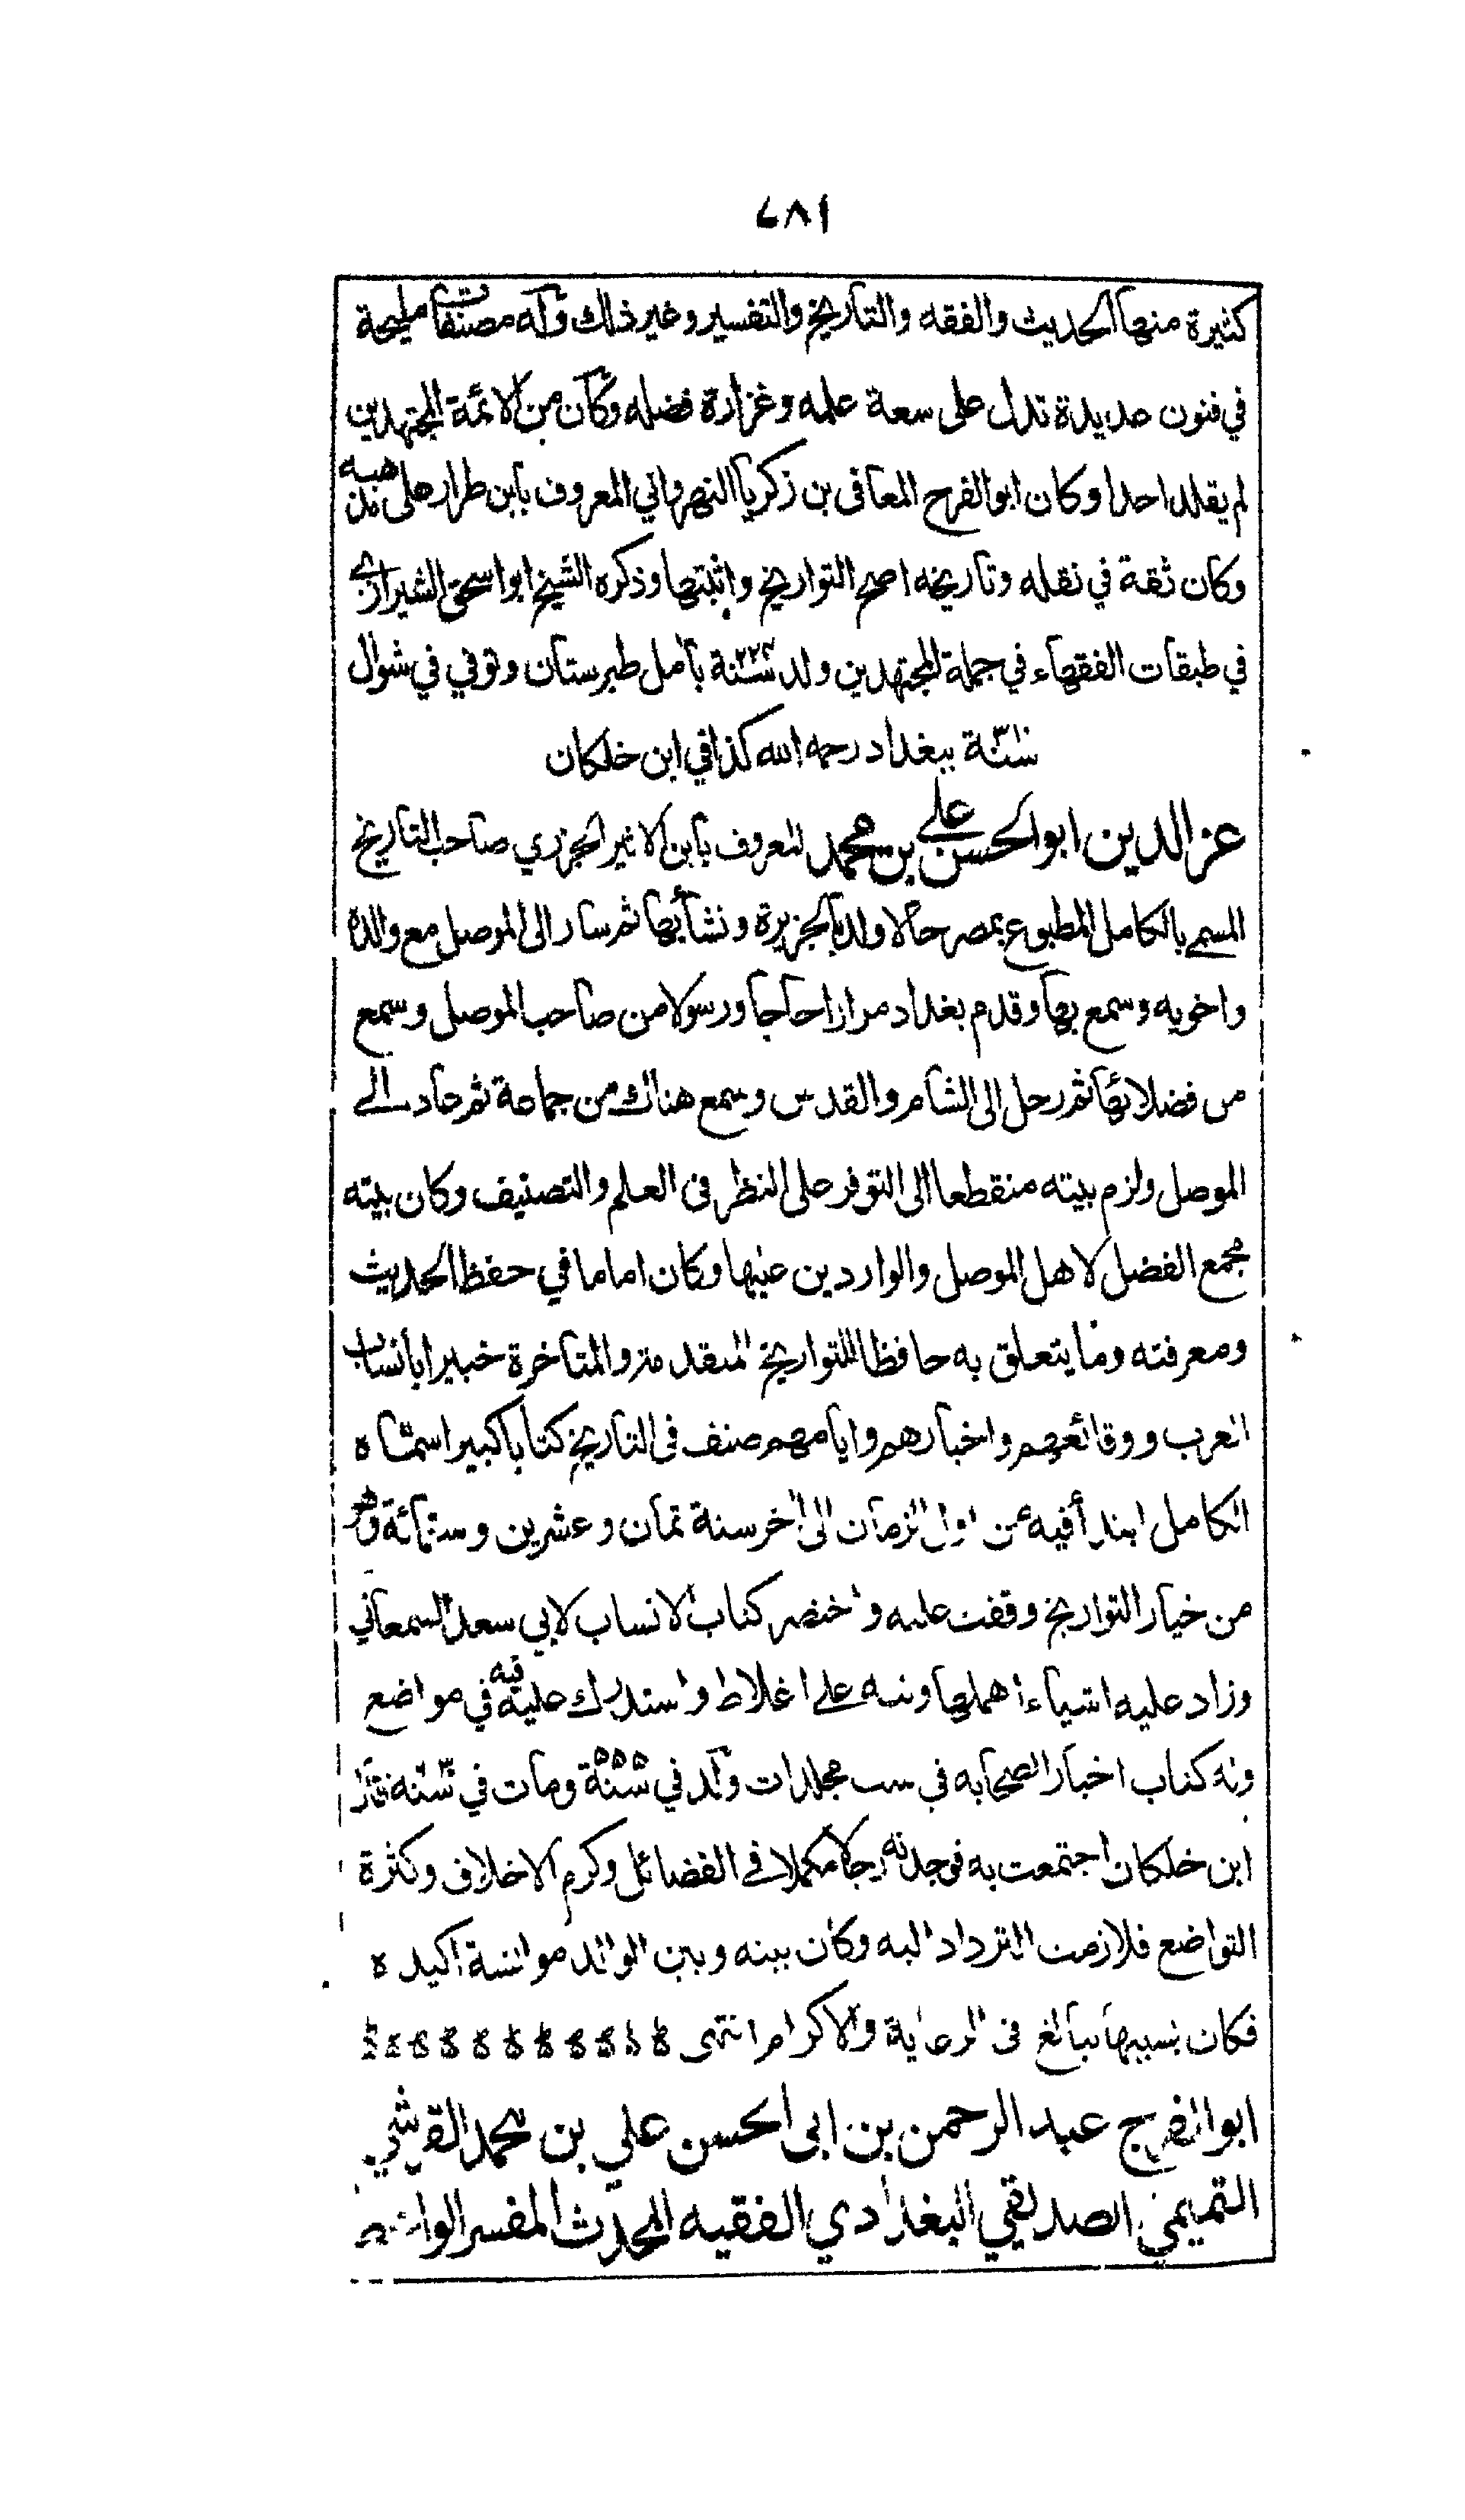 ٧٨١
كثيرة منها الحديث والفقه والتاريخ والتفسير وغير ذلك وله مصنفات مليحة
في فنون عديدة تدل على سعة علمه وغزارة فضله وكان من الائمة المجتهدين
لم يقلد احدا وكان ابو الفرج المعافى بن زكريا النهرواني المعروف بابن طرار على مذهبه
وكان ثقة في نقله وتاريخه اصح التواريخ واثبتها وذكره الشيخ ابو اسحق الشيرازي
في طبقات الفقهاء في جملة المجتهدين ولد سنة ٢٢٤ بآمل طبرستان وتوفي في شوال
سنة ببغداد رحمه الله كذا في ابن خلكان
عز الدين ابو الحسن علي بن محمد المعروف بابن الاثير الجزري صاحب التاريخ
المسمى بالكامل المطبوع بمصر حالا ولد بالجزيرة ونشأ بها ثم سار الى الموصل مع والده
واخويه وسمع بها وقدم بغداد مرارا حاجا ورسولا من صاحب الموصل وسمع
من فضلائها ثم رحل الى الشام والقدس وسمع هناك من جماعة ثم عاد الى
الموصل ولزم بيته منقطعا الى التوفر على النظر في العلم والتصنيف وكان بيته
مجمع الفضل لاهل الموصل والواردين عليها وكان اماما في حفظ الحديث
ومعرفته وما يتعلق به حافظا للتواريخ المتقدمة والمتاخرة خبيرا بانساب
العرب ووقائعهم واخبارهم وايامهم صنف في التاريخ كتابا كبيرا سماه
الكامل ابتدأ فيه من اول الزمان الى اخر سنة ثمان وعشرين وستمائة وهو
من خيار التواريخ وقفت عليه واختصر كتاب الانساب لابي سعد السمعاني
وزاد عليه اشياء اهملها ونبه على اغلاط واستدرك عليه فيه في مواضع
وله كتاب اخبار الصحابه في ست مجلدات ولد في سنة ٥٥٥ ومات في سنة قال
ابن خلكان اجتمعت به فوجدته رجلا مكملا في الفضائل وكرم الاخلاق وكثرة
التواضع فلازمت الترداد اليه وكان بينه وبين الوالد موانسة اكيده
فكان بسببها يبالغ في الرعاية والاكرام انتهى
ابو الفرج عبد الرحمن بن ابى الحسن علي بن محمد القرشي
التميمي الصديقي البغدادي الفقيه المحدث المفسر الواعظ